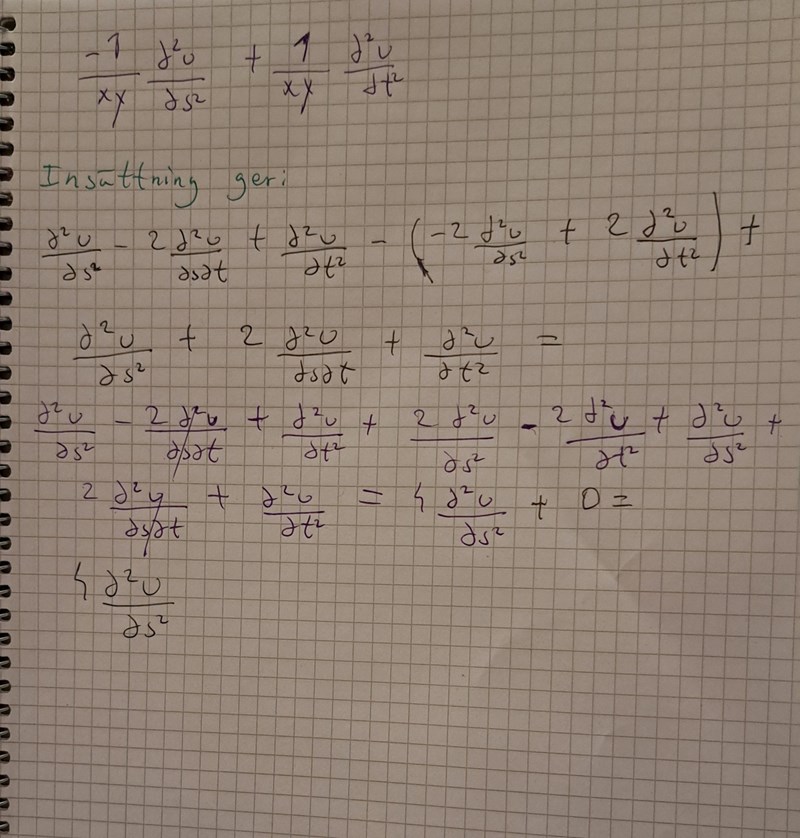 -1/xy ∂²u/∂s² + 1/xy ∂²u/∂t²
Insättning ger:
∂²u/∂s² - 2 ∂²u/∂s∂t + ∂²u/∂t² - (-2 ∂²u/∂s² + 2 ∂²u/∂t²) +
∂²u/∂s² + 2 ∂²u/∂s∂t + ∂²u/∂t² =
∂²u/∂s² - 2 ∂²u/∂s∂t + ∂²u/∂t² + 2 ∂²u/∂s² - 2 ∂²u/∂t² + ∂²u/∂s² +
2 ∂²u/∂s∂t + ∂²u/∂t² = 4 ∂²u/∂s² + 0 =
4 ∂²u/∂s²